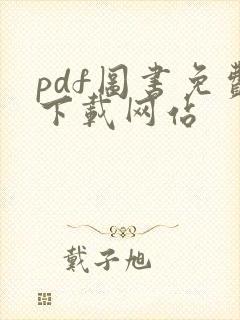 pdf圖書免費
下載网站
戴子旭